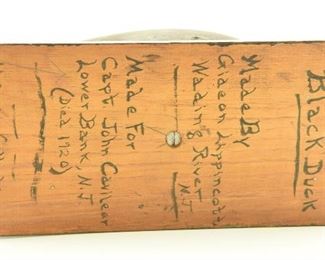 Black Duck
Made By
Gideon Lippincott,
Wading River
N.J.
Made For
Capt. John Cavilear
Lower Bank, N.J.
(Died 1920)